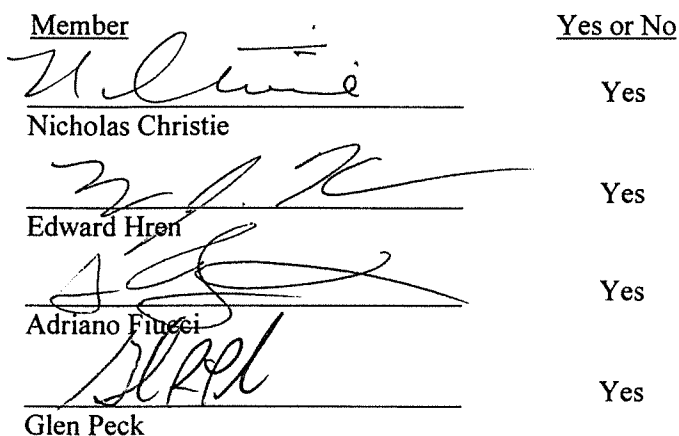 Member Yes or No
Yes
Nicholas Christie
Yes
Edward Hren
Yes
Adriano Fiucci
Yes
Glen Peck